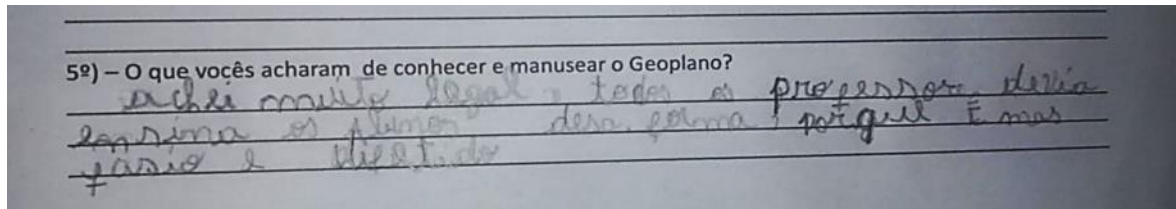 5º) – O que vocês acharam de conhecer e manusear o Geoplano?
achei muito legal, todos os professor devia
ensina os alunos desa forma, porque É mas
fasio e divertido